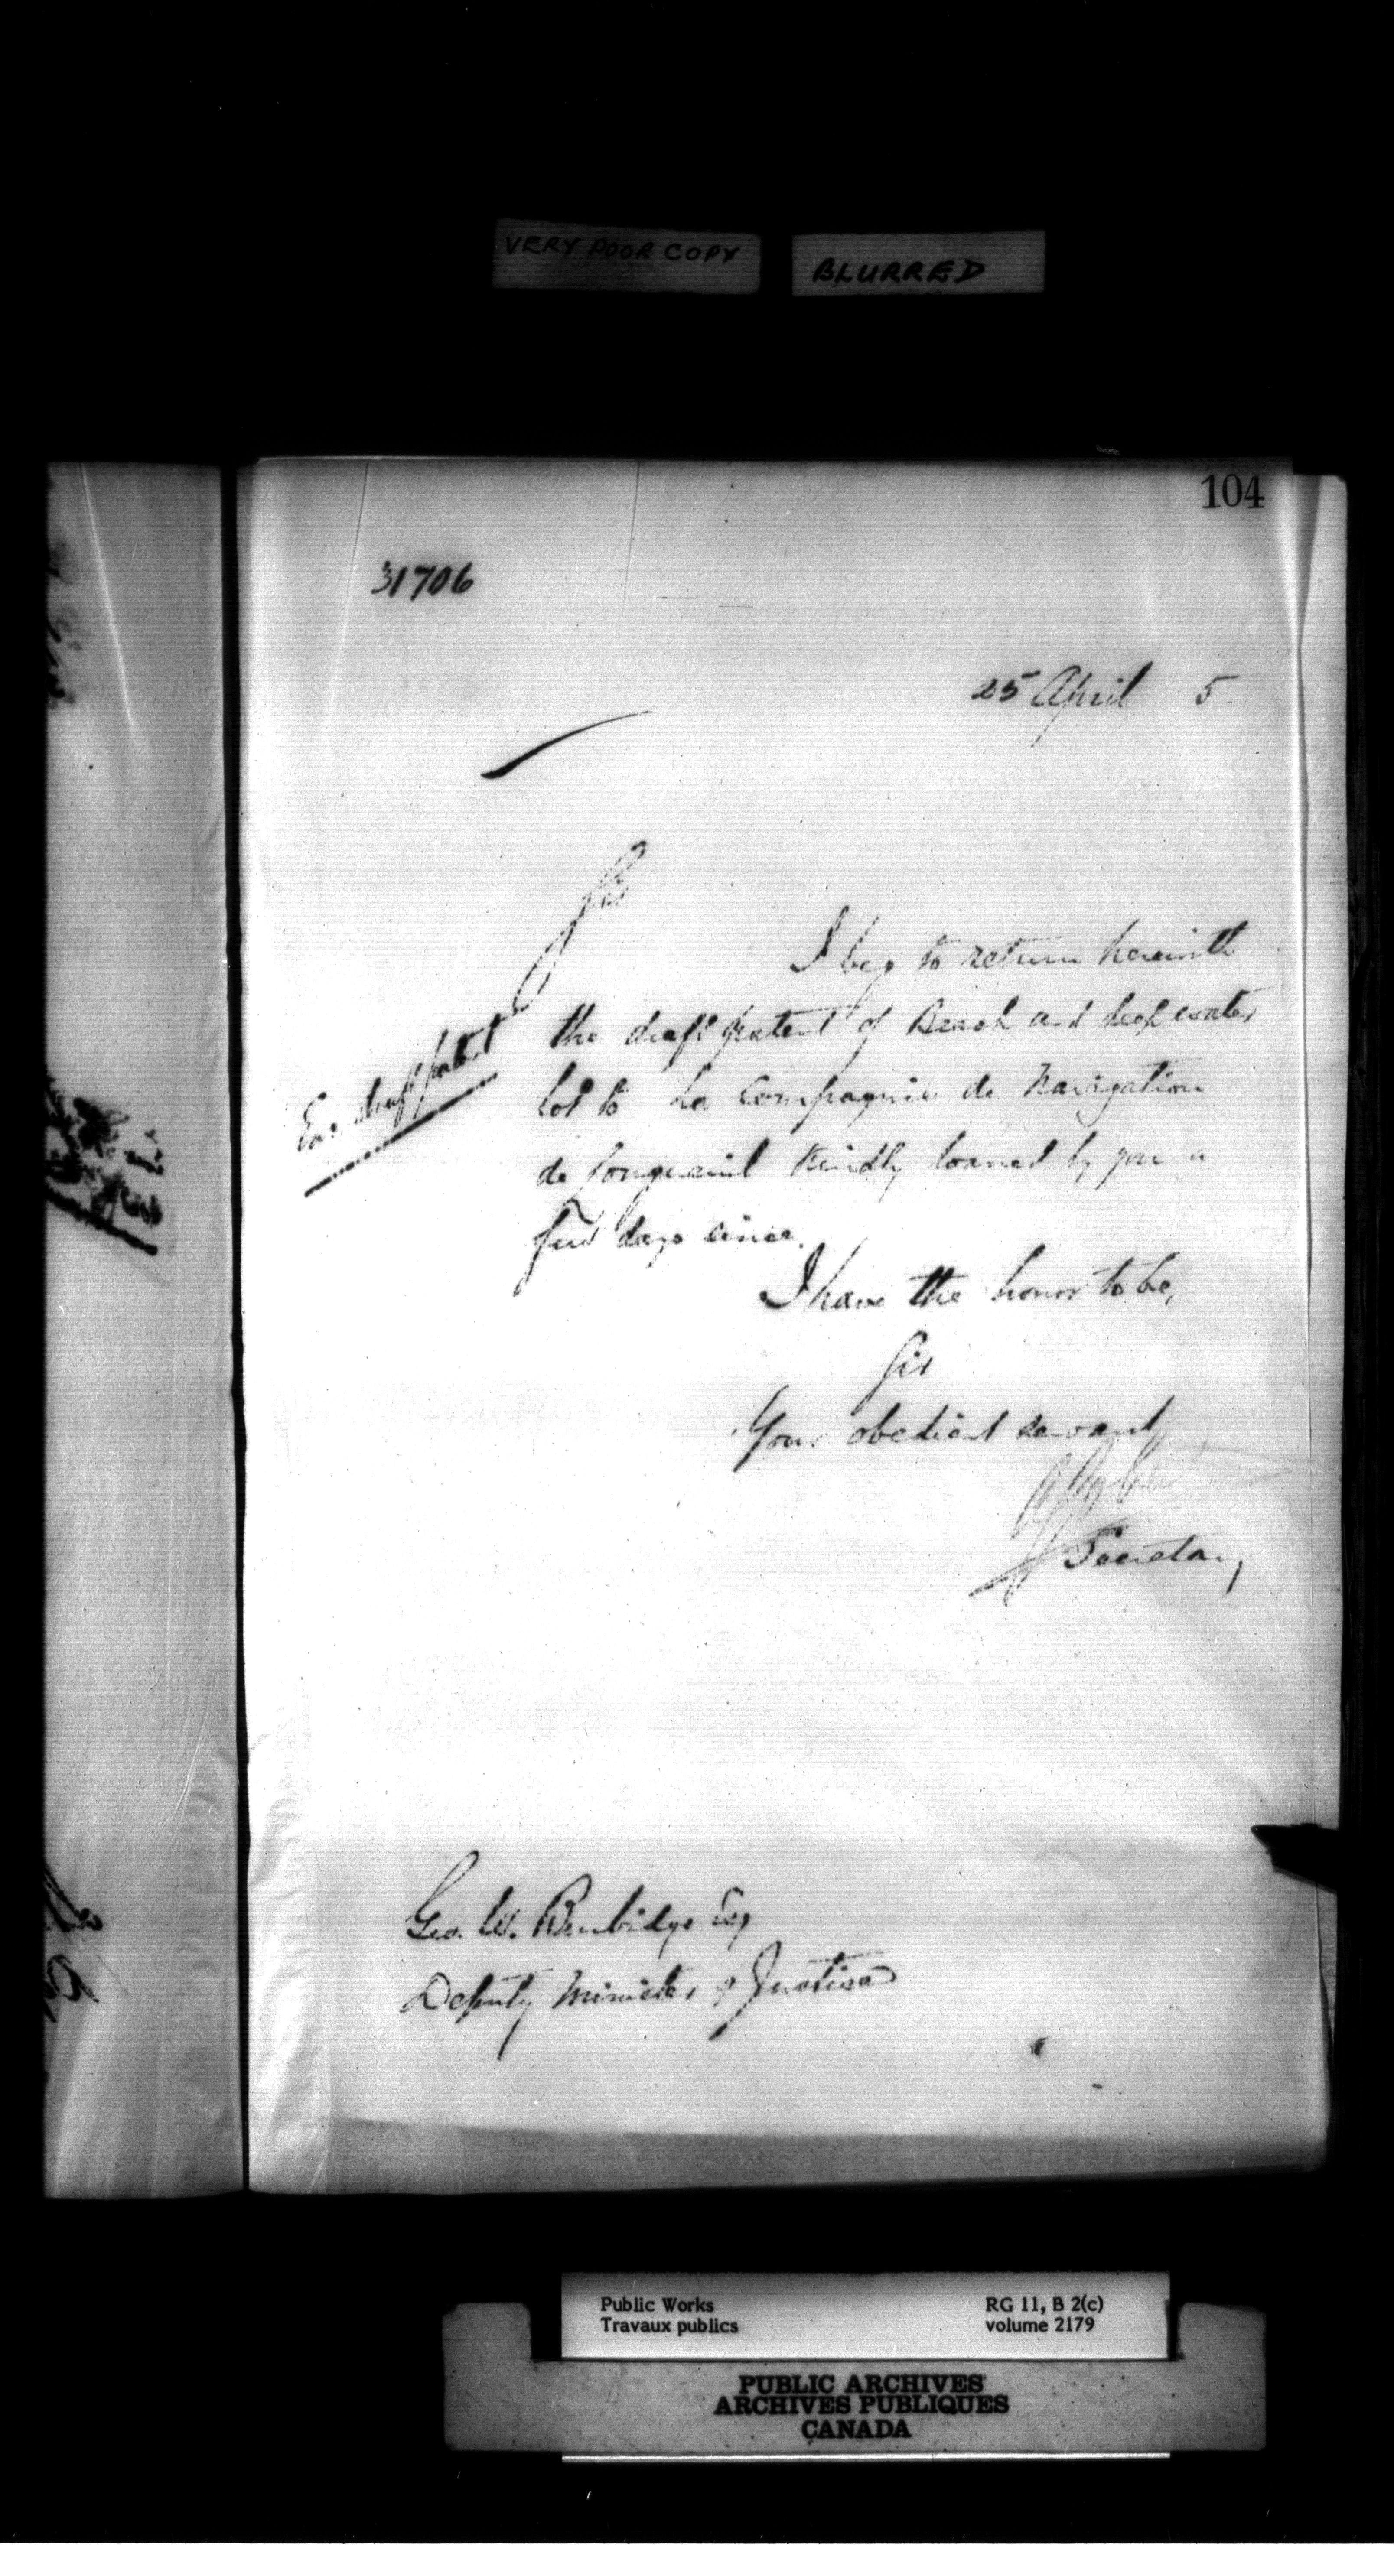 VERY POOR COPY
BLURRED
104
31706
25 April 5
Sir
I beg to return herewith
the draft patent of Beach and deep water
lot to La Compagnie de Navigation
de Longueuil kindly loaned by you a
few days since.
draft patent
I have the honor to be,
Sir
Your obedient servant
Secretary
Geo. W. Burbidge Esq
Deputy Minister of Justice
Public Works
Travaux publics
RG 11, B 2(c)
volume 2179
PUBLIC ARCHIVES
ARCHIVES PUBLIQUES
CANADA